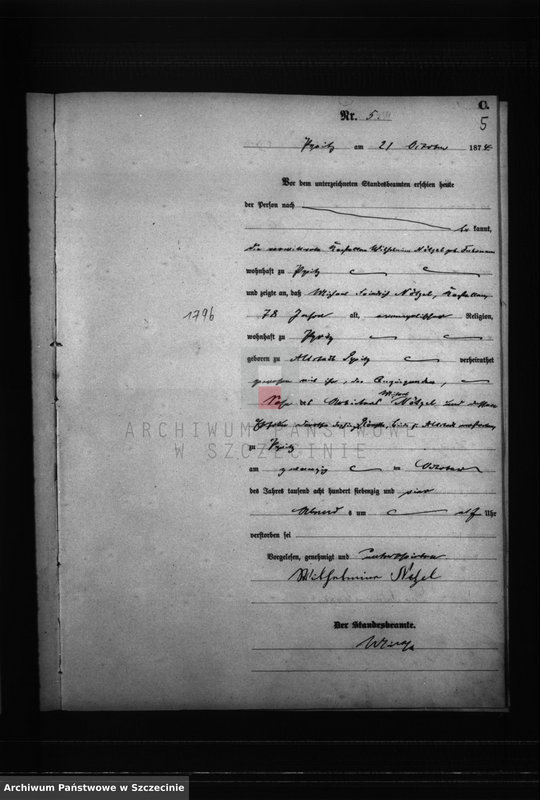 C.
Nr. 5
5
Pyritz am 21 October 1874
Vor dem unterzeichneten Standesbeamten erschien heute
der Person nach
bekannt,
die verwittwete Wilhelmine Nötzel geb.
wohnhaft zu Pyritz
und zeigte an, daß Michael Friedrich Nötzel,
1796
78 Jahre alt, evangelischer Religion,
wohnhaft zu Pyritz
geboren zu Altstadt Pyritz verheirathet
gewesen mit ihr, der Anzeigenden,
Sohn des Nötzel und dessen
Ehefrau
zu Pyritz
am zwanzig en October
des Jahres tausend acht hundert siebenzig und vier
Abends um elf Uhr
verstorben sei
Vorgelesen, genehmigt und unterschrieben
Wilhelmine Netzel
Der Standesbeamte.
ARCHIWUM PAŃSTWOWE
W SZCZECINIE
Archiwum Państwowe w Szczecinie